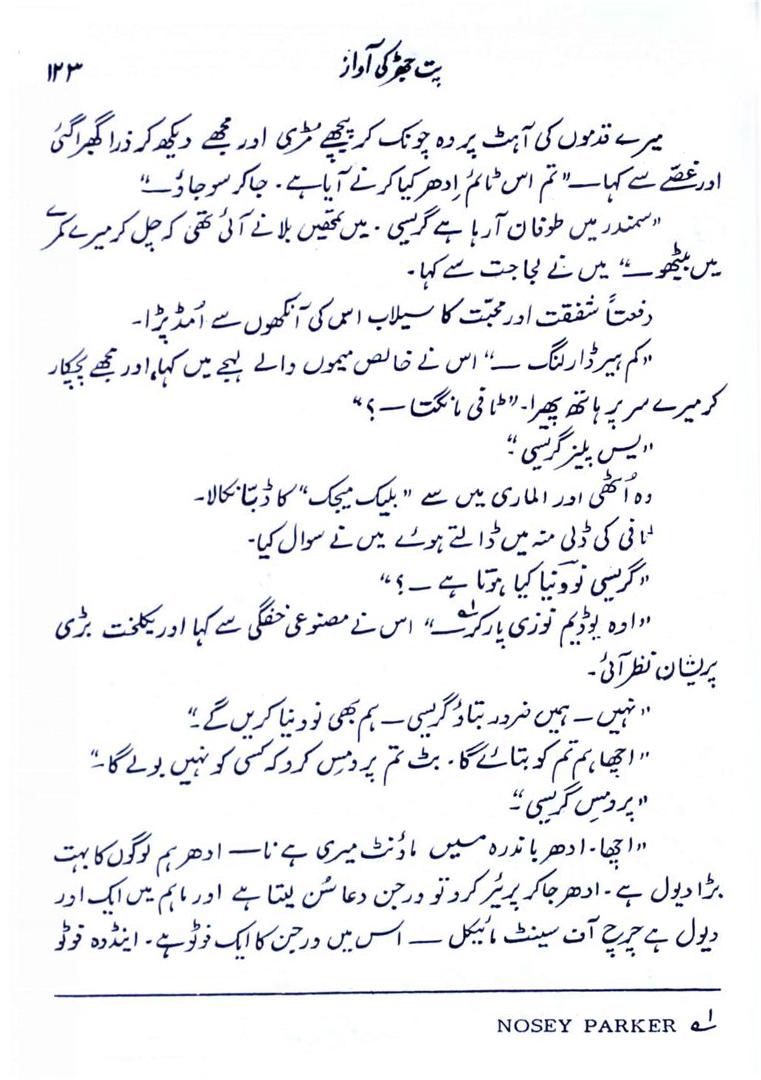 پت جھڑ کی آواز
۱۲۳
میرے قدموں کی آہٹ پر وہ چونک کر پیچھے مُڑی اور مجھے دیکھ کر ذرا گھبرا گئی
اور غصّے سے کہا — "تم اس ٹائم اِدھر کیا کرنے آیا ہے۔ جا کر سو جاؤ —"
"سمندر میں طوفان آ رہا ہے گریسی۔ میں تمھیں بلانے آئی تھی کہ چل کر میرے کمرے
میں بیٹھو —" میں نے لجاجت سے کہا۔
دفعتاً شفقت اور محبّت کا سیلاب اس کی آنکھوں سے اُمڈ پڑا۔
"کم ہیر ڈارلنگ —" اس نے خالص میموں والے لہجے میں کہا، اور مجھے چمکار
کر میرے سر پر ہاتھ پھیرا۔ "ٹافی مانگتا —؟"
"یس پلیز گریسی۔"
وہ اُٹھی اور الماری میں سے "بلیک میجک" کا ڈبّا نکالا۔
ٹافی کی ڈلی منہ میں ڈالتے ہوئے میں نے سوال کیا۔
"گریسی نووینا کیا ہوتا ہے —؟"
"اوہ یو ڈیم نوزی پارکر؎۱ —" اس نے مصنوعی خفگی سے کہا اور یکلخت بڑی
پریشان نظر آئی۔
"نہیں — ہمیں ضرور بتاؤ گریسی — ہم بھی نووینا کریں گے۔"
"اچھا ہم تم کو بتائے گا۔ بٹ تم پرومِس کرو کہ کسی کو نہیں بولے گا —"
"پرومِس گریسی۔"
"اچھا۔ ادھر باندرہ میں ماؤنٹ میری ہے نا — ادھر ہم لوگوں کا بہت
بڑا دیول ہے۔ ادھر جا کر پریئر کرو تو ورجن دعا سُن لیتا ہے اور ماہم میں ایک اور
دیول ہے چرچ آف سینٹ مائیکل — اس میں ورجن کا ایک فوٹو ہے۔ اینڈ وہ فوٹو
؎۱ NOSEY PARKER